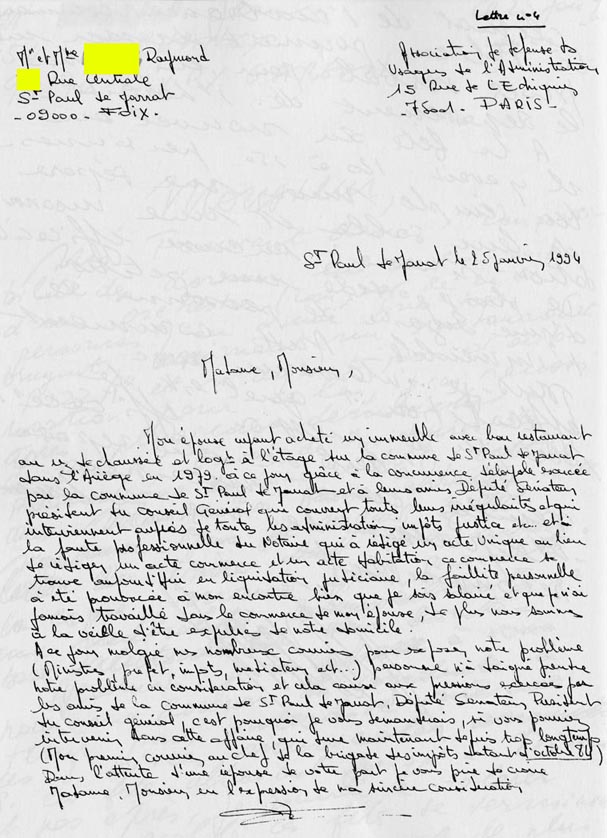 Lettre n°4
Mr et Mme Raymond
Rue Centrale
St Paul de Jarrat
-09000- FOIX-
Association de defense des
Usagers de l'Administration
15 Rue de L'Echiquier
-75001- PARIS-
St Paul de Jarrat le 25 janvier 1994
Madame, Monsieur,
Mon épouse ayant acheté un immeuble avec bar restaurant
au rez de chaussée et logt à l'étage sur la commune de St Paul de Jarrat
dans l'Ariège en 1979. à ce jour grâce à la concurrence déloyale exercée
par la commune de St Paul de Jarrat et à leurs amis Député Sénateur
président du Conseil Général qui couvrent touts leurs irrégularités et qui
interviennent auprès de toutes les administrations, impôts justice etc... et à
la faute professionnelle du Notaire qui à rédigé un acte Unique au lieu
de rédiger un acte commerce et un acte Habitation ce commerce se
trouve aujourd'hui en liquidation judiciaire, la faillite personnelle
à été prononcée à mon encontre bien que je sois salarié et que je n'ai
jamais travaillé dans le commerce de mon épouse, de plus nous sommes
à la veille d'être expulsés de notre domicile.
A ce jour malgré nos nombreux courriers pour exposer notre problème
(Ministres, préfet, impôts, mediateur ect...) personne n'à daigné prendre
notre problème en considération et cela cause aux pressions exercées par
les amis de la commune de St Paul de Jarrat, Député Senateur President
du conseil général, c'est pourquoi je vous demanderais, si vous pouviez
intervenir dans cette affaire, qui dure maintenant depuis trop longtemps
(Mon premier courrier au chef de la brigade des impôts datant d'octobre 81)
Dans l'attente d'une réponse de votre part je vous prie de croire
Madame, Monsieur en l'expression de ma sincère considération